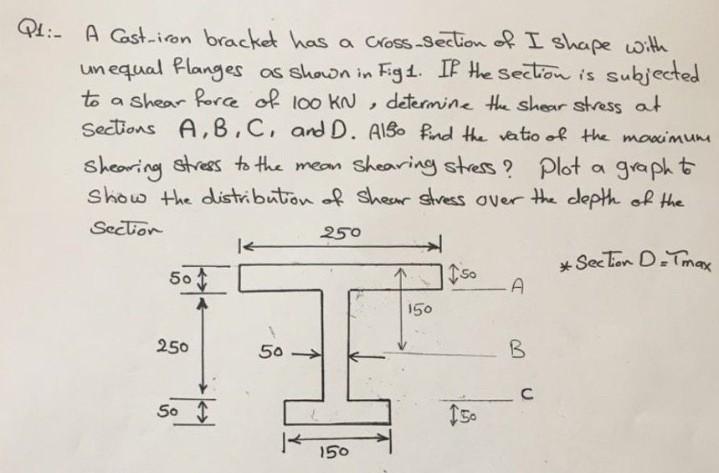 Q1:- A Cast-iron bracket has a cross-section of I shape with
unequal flanges as shown in Fig 1. If the section is subjected
to a shear force of 100 KN, determine the shear stress at
Sections A, B, C, and D. Also find the ratio of the maximum
shearing stress to the mean shearing stress? Plot a graph to
Show the distribution of shear stress over the depth of the
Section
250
* Section D = Tmax
50
50
A
150
250
50
B
C
50
50
150